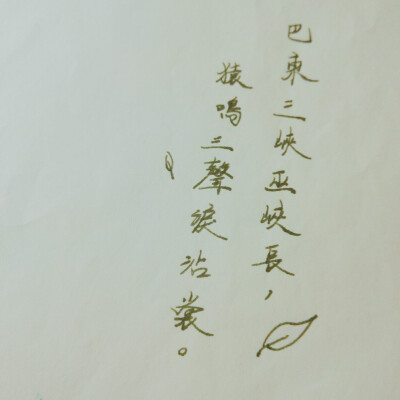 巴東三峽巫峽長，
猿鳴三聲淚沾裳。